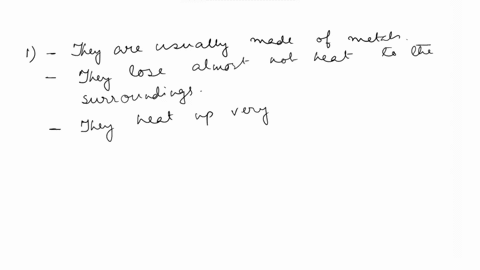 1) - They are usually made of metals.
- They lose almost not heat to the
surroundings.
- They heat up very